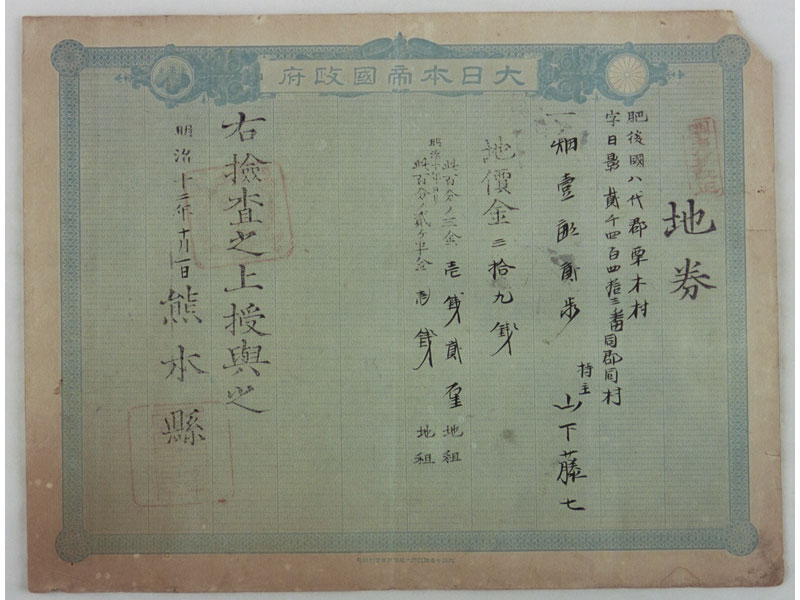 大日本帝國政府
地券
肥後國八代郡栗木村
字日影 貳千四百四拾三番同郡同村
一畑壹畝貳歩
持主 山下藤七
地價金三拾九錢
此百分ノ三金壱錢貳厘 地租
明治十年ヨリ
此百分ノ貳ケ半金壱錢 地租
右撿査之上授與之
明治十二年十月一日
熊本縣